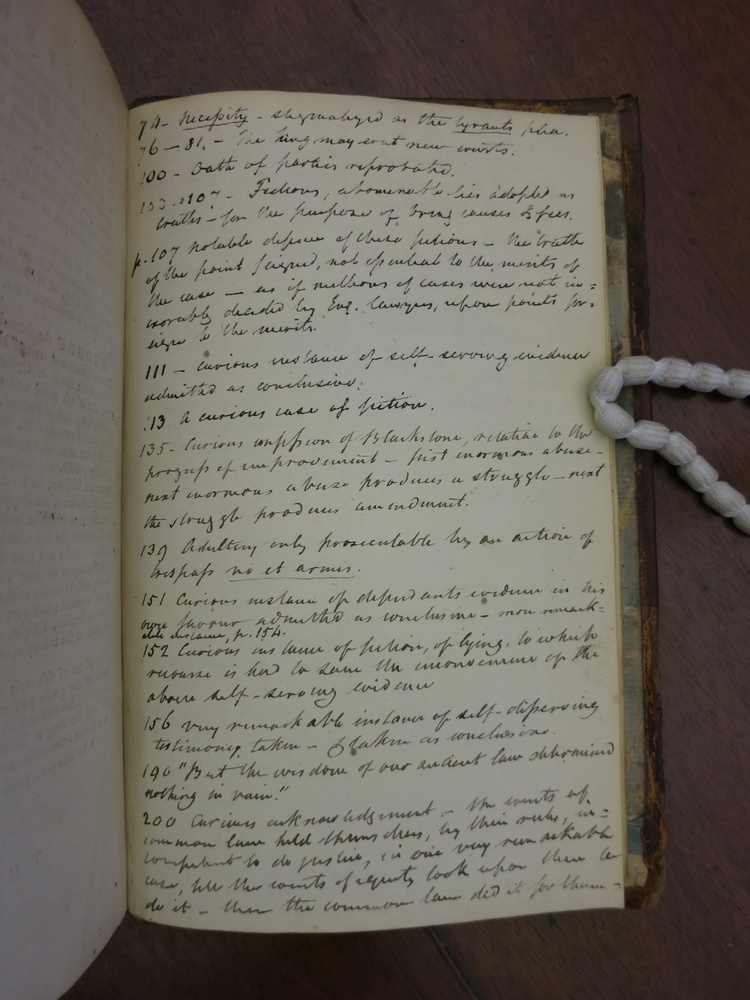 74 - Necessity - stigmatized as the tyrants plea.
76 - 81. - The King may erect new courts.
100 - Oath of parties reprobated.
103. 107 - Fictions, abominable lies adopted as
truths - for the purpose of bring causes & fees.
p. 107 notable defence of these fictions - the truth
of the point feigned, not essential to the merits of
the case - as if millions of cases were not in=
exorably decided by Eng. lawyers, upon points for=
eign to the merits.
111 - Curious instance of self-serving evidence
admitted as conclusive.
113 A curious case of fiction.
135 - Curious confession of Blackstone, relative to the
progress of improvement - first enormous abuse -
next enormous abuse produces a struggle - next
the struggle produces amendment.
139 Adultery only prosecutable by an action of
trespass vi et armis.
151 Curious instance of defendants evidence in his
own favour admitted as conclusive - more remark=
able instance, p. 154.
152 Curious instance of fiction, of lying, to which
recourse is had to save the inconvenience of the
above self-serving evidence
156 very remarkable instance of self-disserving
testimony taken - & taken as conclusive.
190 "But the wisdom of our ancient law determined
nothing in vain."
200 Curious acknowledgment - the courts of
common law held themselves, by their rules, in=
competent to do justice, in one very remarkable
case, till the courts of equity took upon them to
do it - then the common law did it for them=